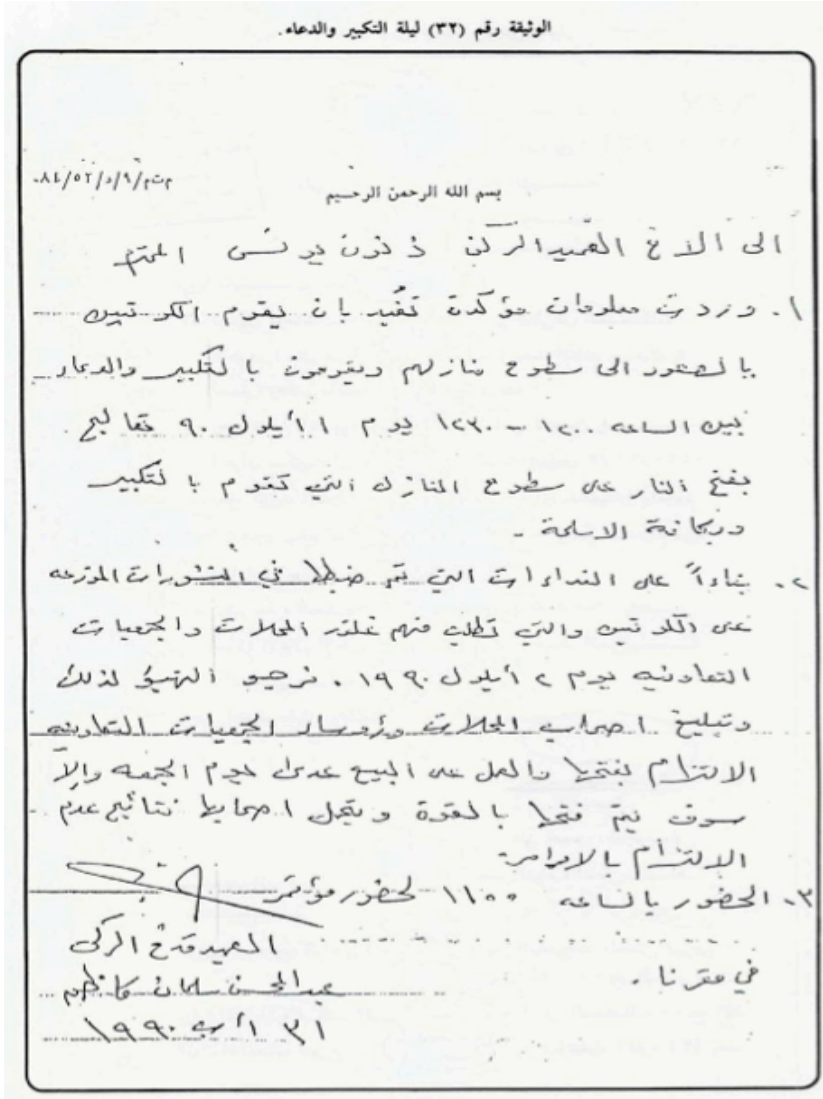 الوثيقة رقم (٣٢) ليلة التكبير والدعاء.
م ت م/٩/د/٥٢/٨٤٠
بسم الله الرحمن الرحيم
الى الاخ العميد الركن ذنون يونس المحترم
١. وردت معلومات مؤكدة تفيد بان يقوم الكوتيين
بالصعود الى سطوح منازلهم ويقومون بالتكبير والدعاء
بين الساعه ١٢٠٠ – ١٢٣٠ يوم ١ أيلول ٩٠
بفتح النار على سطوح المنازل التي تقوم بالتكبير
وبكافة الاسلحة.
٢. بناءاً على النداءات التي تم ضبطها في المنشورات الموزعه
على الكوتيين والتي تطلب منهم غلق المحلات والجمعيات
التعاونيه يوم ٢ أيلول ١٩٩٠. نرجو التهيؤ لذلك
وتبليغ اصحاب المحلات ورؤساء الجمعيات التعاونيه
الالتزام بفتحها والعمل على البيع عدى يوم الجمعه والا
سوف يتم فتحها بالقوة ويتحمل اصحابها نتائج عدم
الالتزام بالاوامر.
٣. الحضور بالساعه ١١٠٠ لحضور مؤتمر
في مقرنا.
العميد ق خ الركن
عبدالمحسن سلمان كاظم
٣١ أب ١٩٩٠